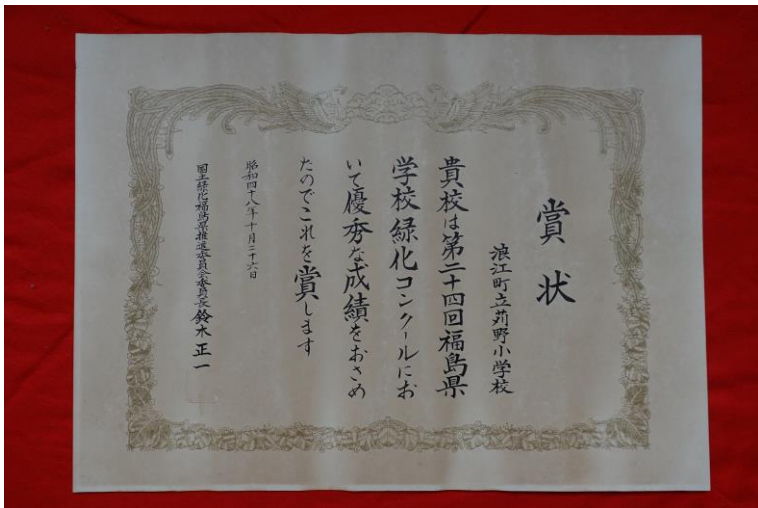 賞状
浪江町立苅野小学校
貴校は第二十四回福島県
学校緑化コンクールにお
いて優秀な成績をおさめ
たのでこれを賞します
昭和四十八年十月二十六日
国土緑化福島県推進委員会委員長 鈴木正一